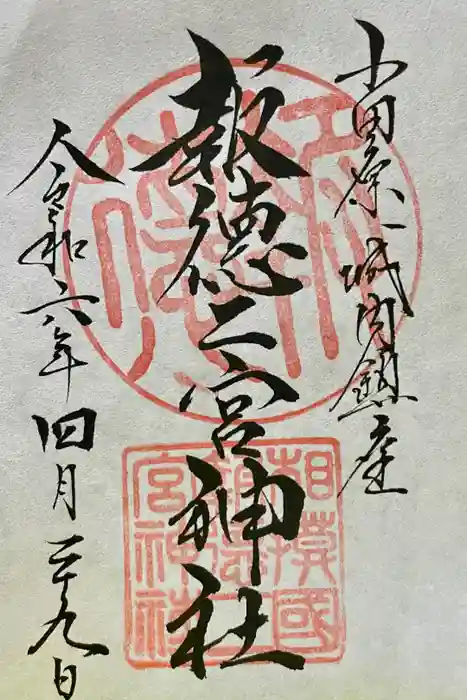 小田原城内鎮座
報徳二宮神社
令和六年四月二十九日
相模國
報徳二
宮神社